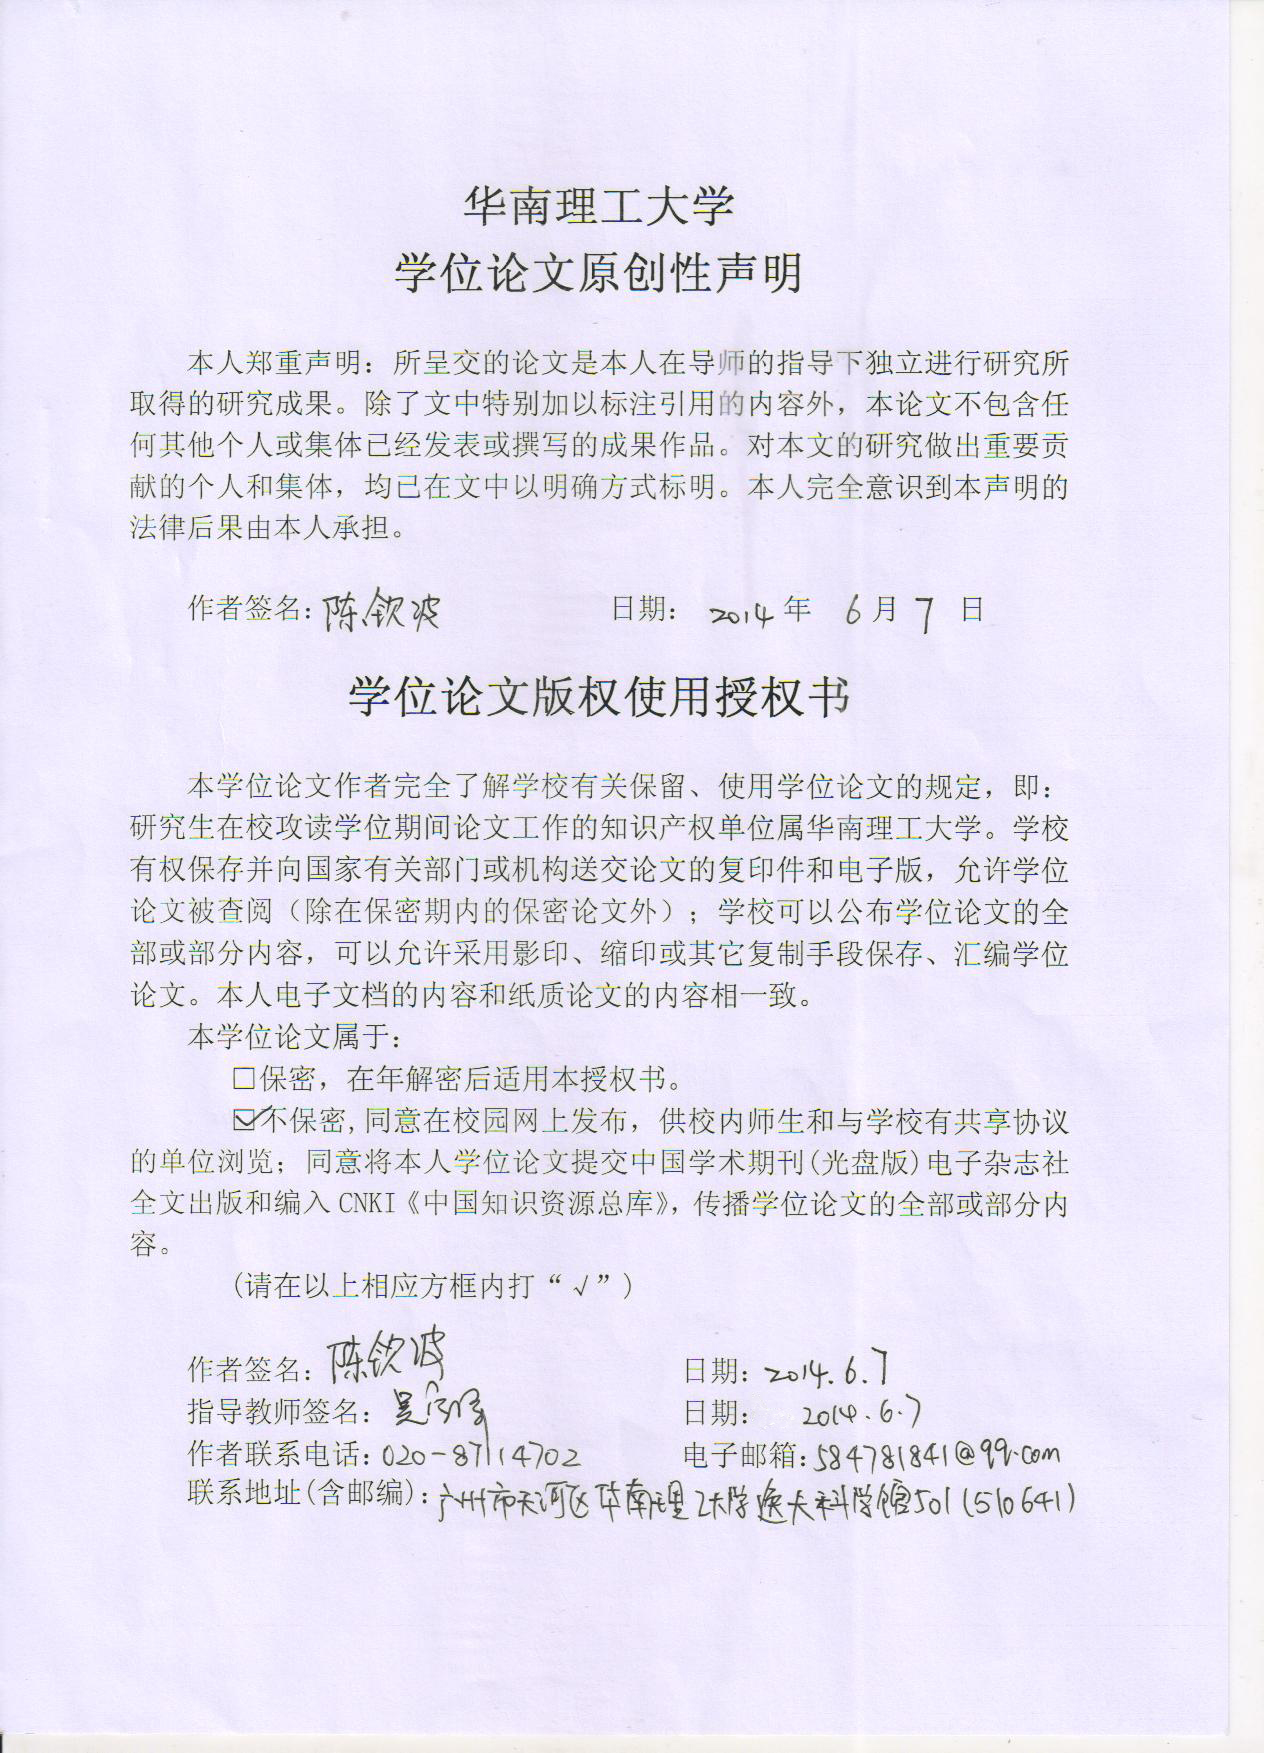 华南理工大学
学位论文原创性声明
本人郑重声明：所呈交的论文是本人在导师的指导下独立进行研究所
取得的研究成果。除了文中特别加以标注引用的内容外，本论文不包含任
何其他个人或集体已经发表或撰写的成果作品。对本文的研究做出重要贡
献的个人和集体，均已在文中以明确方式标明。本人完全意识到本声明的
法律后果由本人承担。
作者签名：陈钦波 日期： 2014 年 6 月 7 日
学位论文版权使用授权书
本学位论文作者完全了解学校有关保留、使用学位论文的规定，即：
研究生在校攻读学位期间论文工作的知识产权单位属华南理工大学。学校
有权保存并向国家有关部门或机构送交论文的复印件和电子版，允许学位
论文被查阅（除在保密期内的保密论文外）；学校可以公布学位论文的全
部或部分内容，可以允许采用影印、缩印或其它复制手段保存、汇编学位
论文。本人电子文档的内容和纸质论文的内容相一致。
本学位论文属于：
□保密，在年解密后适用本授权书。
☑不保密,同意在校园网上发布，供校内师生和与学校有共享协议
的单位浏览；同意将本人学位论文提交中国学术期刊(光盘版)电子杂志社
全文出版和编入 CNKI《中国知识资源总库》，传播学位论文的全部或部分内
容。
(请在以上相应方框内打“√”)
作者签名：陈钦波 日期：2014.6.7
指导教师签名：吴 日期： 2014.6.7
作者联系电话：020-87114702 电子邮箱：584781841@qq.com
联系地址(含邮编)：广州市天河区华南理工大学逸夫科学馆501(510641)